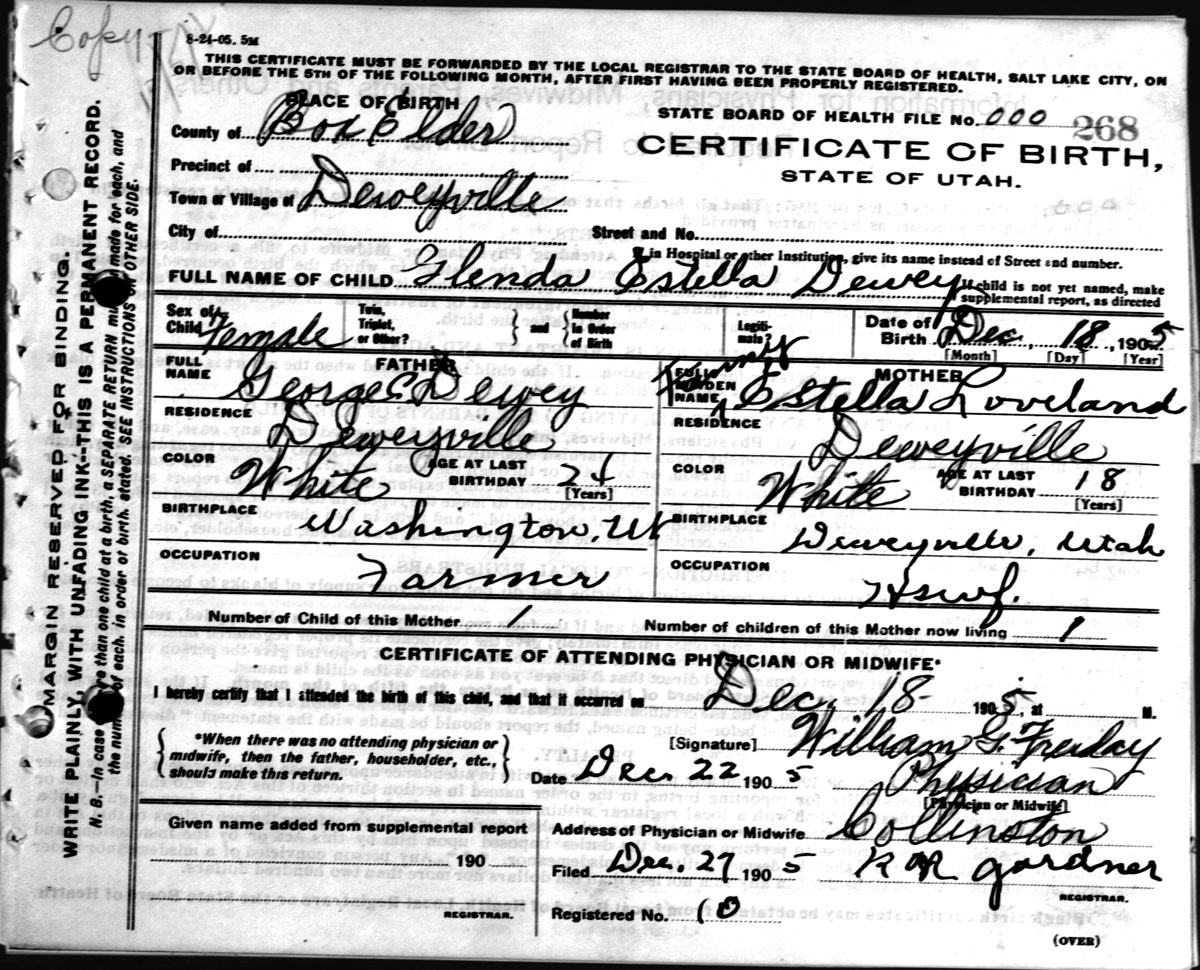 Copy
8-24-05. 5M
THIS CERTIFICATE MUST BE FORWARDED BY THE LOCAL REGISTRAR TO THE STATE BOARD OF HEALTH, SALT LAKE CITY, ON
OR BEFORE THE 5TH OF THE FOLLOWING MONTH, AFTER FIRST HAVING BEEN PROPERLY REGISTERED.
PLACE OF BIRTH
STATE BOARD OF HEALTH FILE No. 000 268
County of Box Elder
CERTIFICATE OF BIRTH,
Precinct of
STATE OF UTAH.
Town or Village of Deweyville
City of Street and No.
If in Hospital or other Institution, give its name instead of Street and number.
FULL NAME OF CHILD Glenda Estella Dewey
If child is not yet named, make
supplemental report, as directed
Sex of Child Female
Twin, Triplet, or Other? and Number In Order of Birth
Legitimate?
Date of Birth Dec. 18, 1905
[Month] [Day] [Year]
FATHER
FULL NAME George E Dewey
RESIDENCE Deweyville
COLOR White AGE AT LAST BIRTHDAY 24
[Years]
BIRTHPLACE Washington, Ut
OCCUPATION Farmer
MOTHER
FULL MAIDEN NAME Fanny Estella Loveland
RESIDENCE Deweyville
COLOR White AGE AT LAST BIRTHDAY 18
[Years]
BIRTHPLACE Deweyville, Utah
OCCUPATION Hswf.
Number of Child of this Mother 1 Number of children of this Mother now living 1
CERTIFICATE OF ATTENDING PHYSICIAN OR MIDWIFE*
I hereby certify that I attended the birth of this child, and that it occurred on Dec. 18 1905, at M.
*When there was no attending physician or
midwife, then the father, householder, etc.,
should make this return.
[Signature] William G. Freday
Date Dec. 22 1905 Physician
[Physician or Midwife]
Given name added from supplemental report
190
REGISTRAR.
Address of Physician or Midwife Collinston
Filed Dec. 27 1905 Gardner
REGISTRAR.
Registered No. 10
(OVER)
MARGIN RESERVED FOR BINDING.
WRITE PLAINLY, WITH UNFADING INK—THIS IS A PERMANENT RECORD.
N. B.—In case of more than one child at a birth, a SEPARATE RETURN must be made for each, and
the number of each, in order of birth, stated. SEE INSTRUCTIONS ON OTHER SIDE.